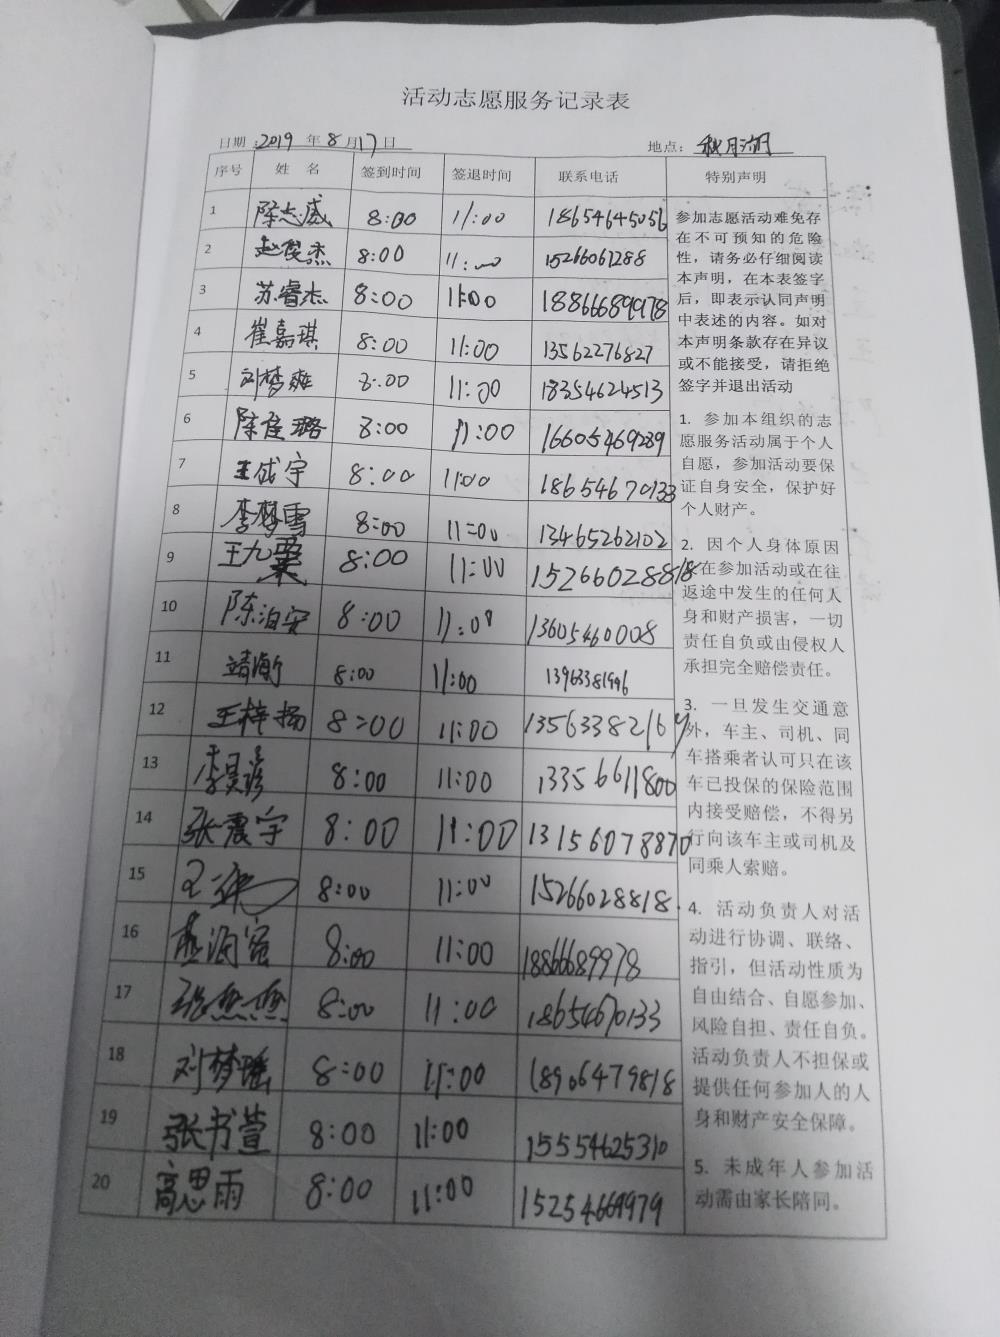 活动志愿服务记录表
日期：2019 年 8 月 17 日 地点：秋月湖
序号 姓 名 签到时间 签退时间 联系电话 特别声明
1 陈志威 8:00 11:00 18654645056
2 赵俊杰 8:00 11:00 15266061288
3 苏睿杰 8:00 11:00 18866689978
4 崔嘉琪 8:00 11:00 13562276827
5 刘梦雅 8:00 11:00 18354624513
6 8:00 11:00 16605469289
7 王成宇 8:00 11:00 18654670133
8 李梦雪 8:00 11:00 13465262102
9 王九 8:00 11:00 15266028818
10 陈泊安 8:00 11:00 13605460008
11 8:00 11:00
12 王梓扬 8:00 11:00
13 8:00 11:00 13356611800
14 张震宇 8:00 11:00 13156078870
15 8:00 11:00 15266028818.
16 8:00 11:00 18866689978
17 8:00 11:00 18654670133
18 刘梦瑶 8:00 11:00 18906479818
19 张书萱 8:00 11:00 15554625310
20 高思雨 8:00 11:00 15254669979
参加志愿活动难免存
在不可预知的危险
性，请务必仔细阅读
本声明，在本表签字
后，即表示认同声明
中表述的内容。如对
本声明条款存在异议
或不能接受，请拒绝
签字并退出活动
1. 参加本组织的志
愿服务活动属于个人
自愿，参加活动要保
证自身安全，保护好
个人财产。
2. 因个人身体原因
在参加活动或在往
返途中发生的任何人
身和财产损害，一切
责任自负或由侵权人
承担完全赔偿责任。
3. 一旦发生交通意
外，车主、司机、同
车搭乘者认可只在该
车已投保的保险范围
内接受赔偿，不得另
行向该车主或司机及
同乘人索赔。
4. 活动负责人对活
动进行协调、联络、
指引，但活动性质为
自由结合、自愿参加、
风险自担、责任自负。
活动负责人不担保或
提供任何参加人的人
身和财产安全保障。
5. 未成年人参加活
动需由家长陪同。